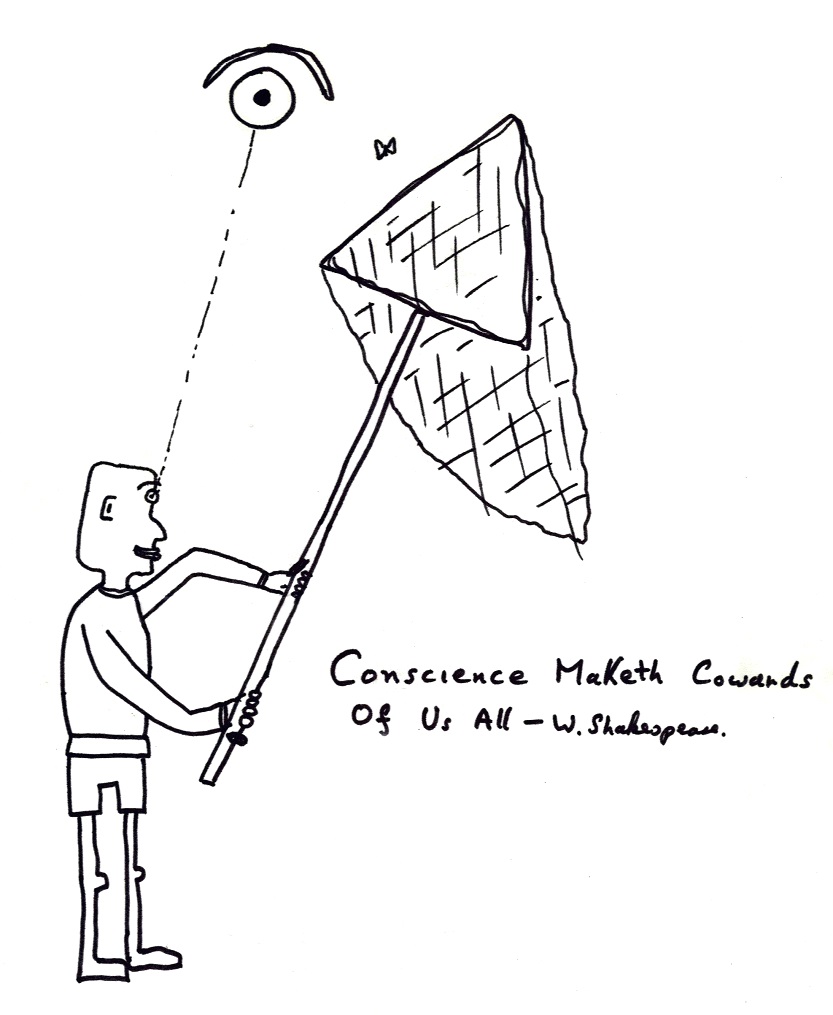 Conscience Maketh Cowards
Of Us All - W. Shakespeare.